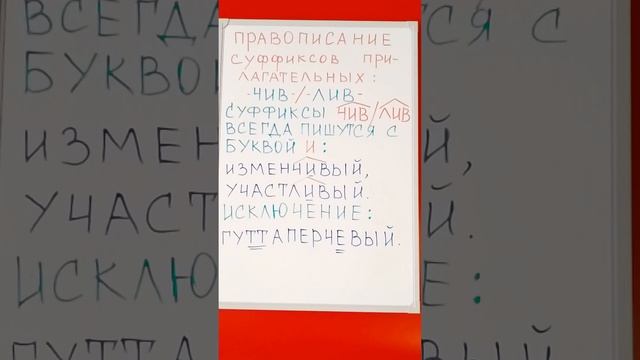 ПРАВОПИСАНИЕ
СУФФИКСОВ ПРИ-
ЛАГАТЕЛЬНЫХ:
-ЧИВ-/-ЛИВ-
СУФФИКСЫ ЧИВ/ЛИВ
ВСЕГДА ПИШУТСЯ С
БУКВОЙ И:
ИЗМЕНЧИВЫЙ,
УЧАСТЛИВЫЙ.
ИСКЛЮЧЕНИЕ:
ГУТТАПЕРЧЕВЫЙ.